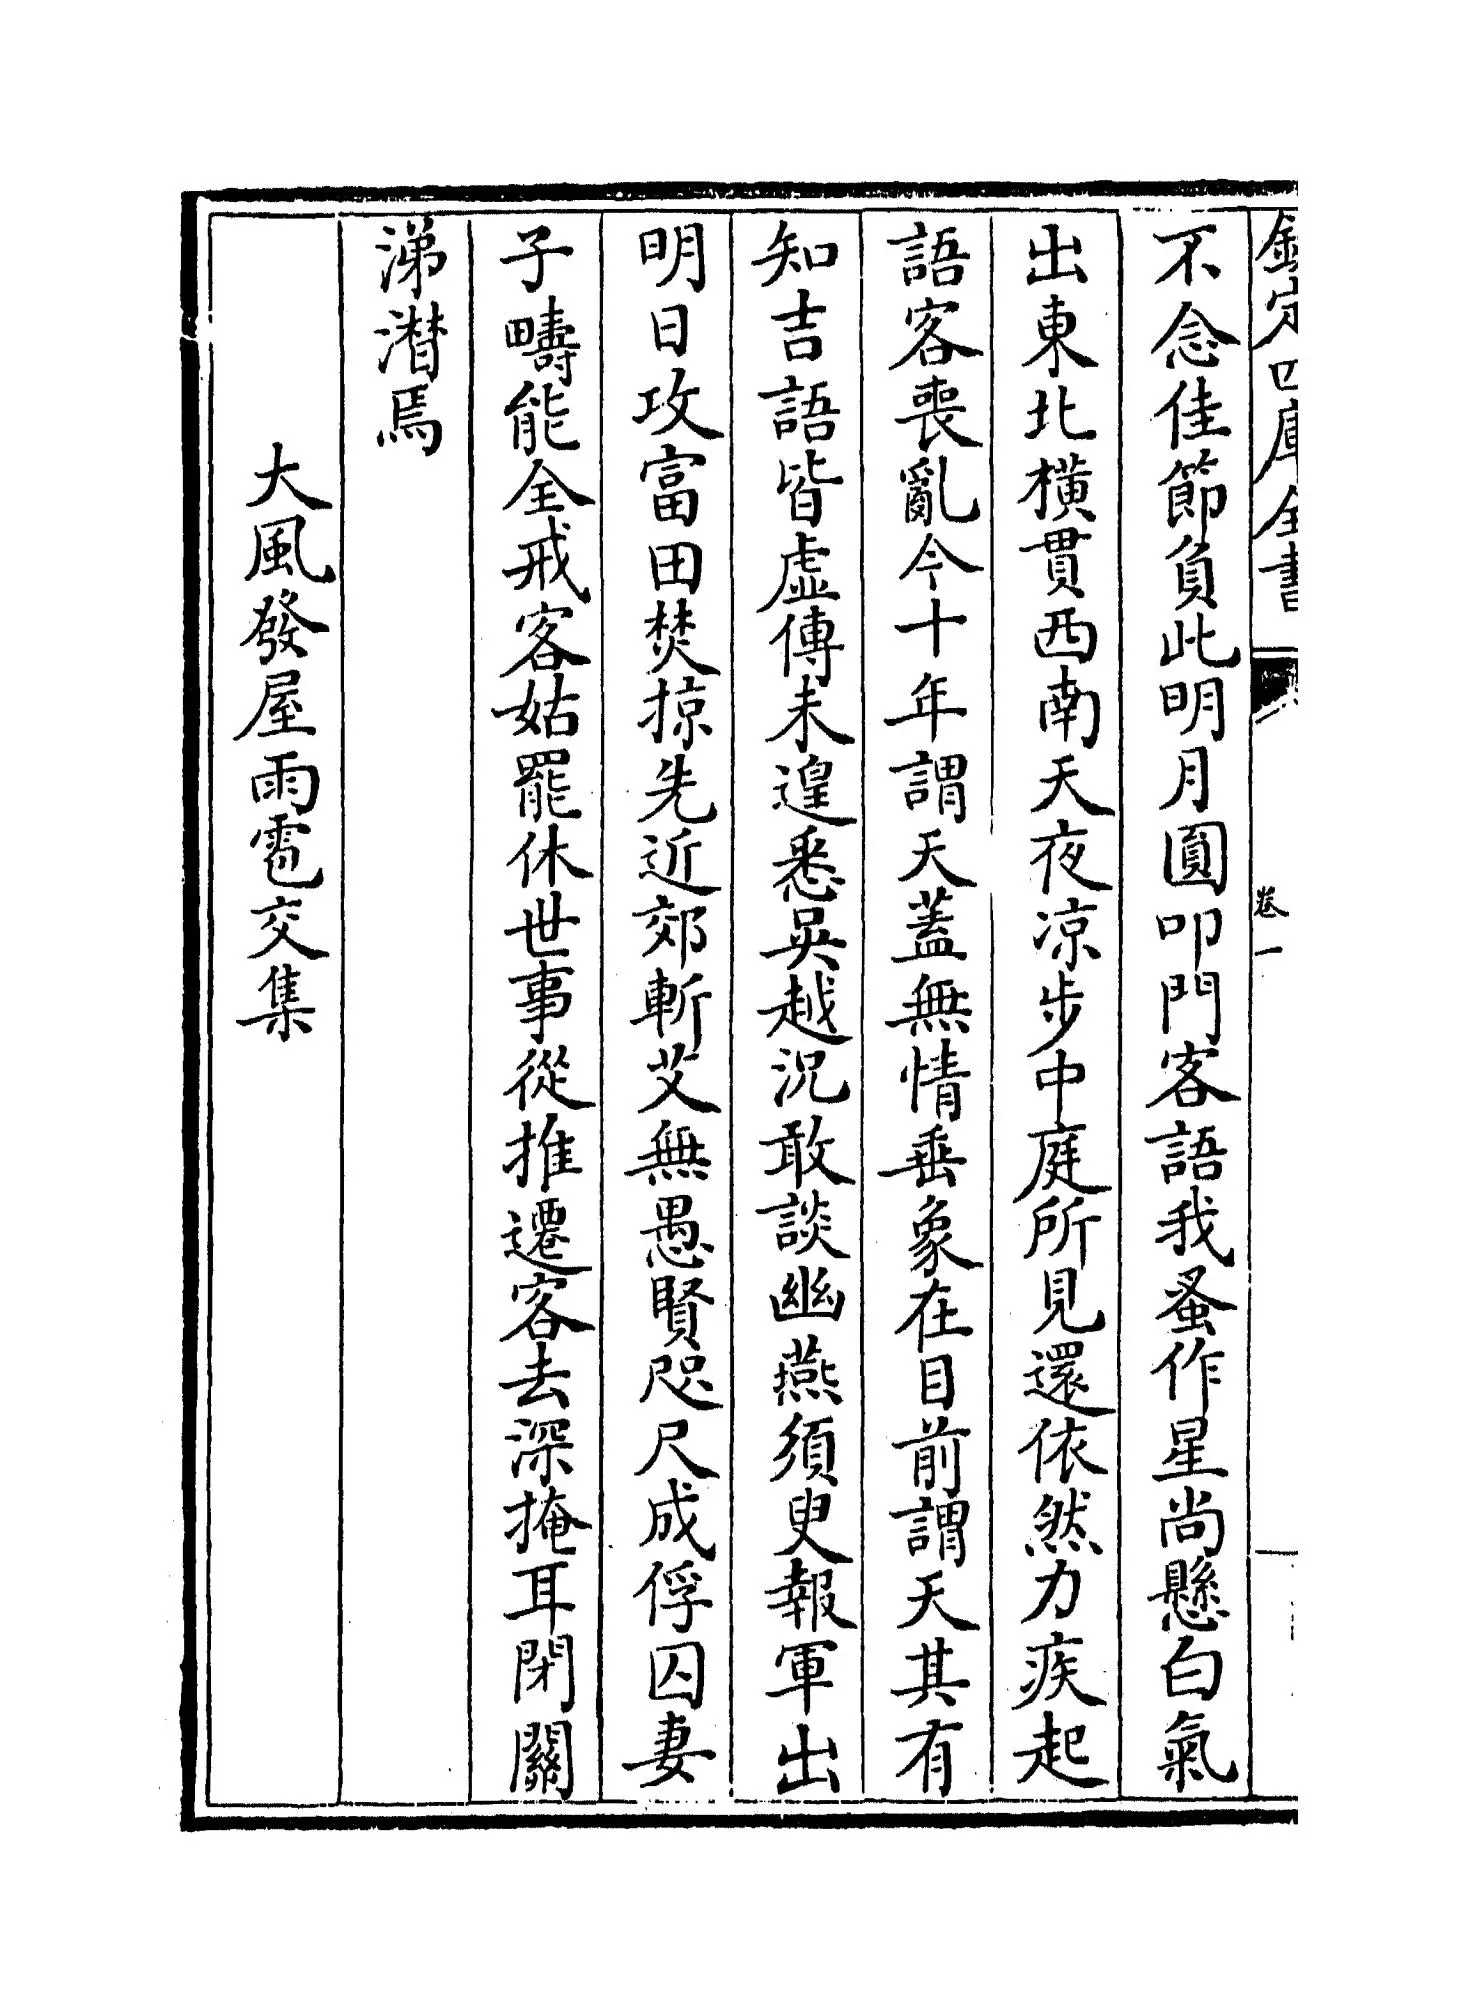 欽定四庫全書
卷一
不念佳節負此明月圓叩門客語我蚤作星尚懸白氣
出東北橫貫西南天夜凉步中庭所見還依然力疾起
語客喪亂今十年謂天蓋無情垂象在目前謂天其有
知吉語皆虛傳未遑悉吳越況敢談幽燕須臾報軍出
明日攻富田焚掠先近郊斬艾無愚賢咫尺成俘囚妻
子疇能全戒客姑罷休世事從推遷客去深掩耳閉關
涕潸焉
大風發屋雨雹交集